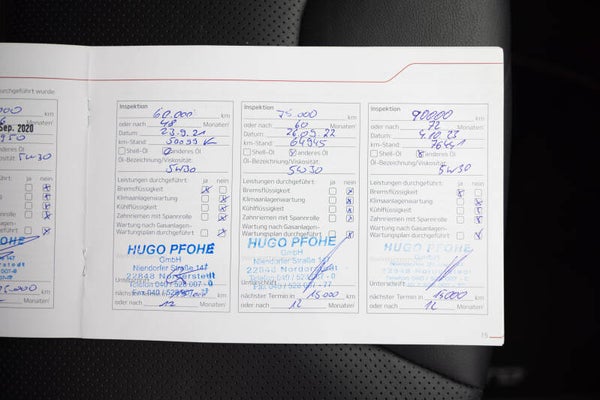 urchgeführt wurde:
Sep. 2020
5W30
ja nein
Monaten!
Inspektion
60.000 km
oder nach 48 Monaten!
Datum: 23.9.21
km-Stand:
Shell-Öl anderes Öl
Öl-Bezeichnung/Viskosität:
5W30
Leistungen durchgeführt: ja nein
Bremsflüssigkeit
Klimaanlagenwartung
Kühlflüssigkeit
Zahnriemen mit Spannrolle
Wartung nach Gasanlagen-
Wartungsplan durchgeführt
HUGO PFOHE
GmbH
Niendorfer Straße 141
22848 Norderstedt
Telefon 040 / 528 007 - 0
Unterschrift
nächster Termin in km
oder nach 12 Monaten!
Inspektion
75.000 km
oder nach 60 Monaten!
Datum: 26.09.22
km-Stand: 64945
Shell-Öl anderes Öl
Öl-Bezeichnung/Viskosität:
5W30
Leistungen durchgeführt: ja nein
Bremsflüssigkeit
Klimaanlagenwartung
Kühlflüssigkeit
Zahnriemen mit Spannrolle
Wartung nach Gasanlagen-
Wartungsplan durchgeführt
HUGO PFOHE
GmbH
Niendorfer Straße
22848 Norderstedt
Telefon 040 / 528 007 - 0
Unterschrift
nächster Termin in 15000 km
oder nach 12 Monaten!
Inspektion
90000 km
oder nach 72 Monaten!
Datum: 4.10.23
km-Stand: 76451
Shell-Öl anderes Öl
Öl-Bezeichnung/Viskosität:
5W30
Leistungen durchgeführt: ja nein
Bremsflüssigkeit
Klimaanlagenwartung
Kühlflüssigkeit
Zahnriemen mit Spannrolle
Wartung nach Gasanlagen-
Wartungsplan durchgeführt
HUGO PFOHE
Unterschrift
nächster Termin in 15000 km
oder nach 12 Monaten!
15